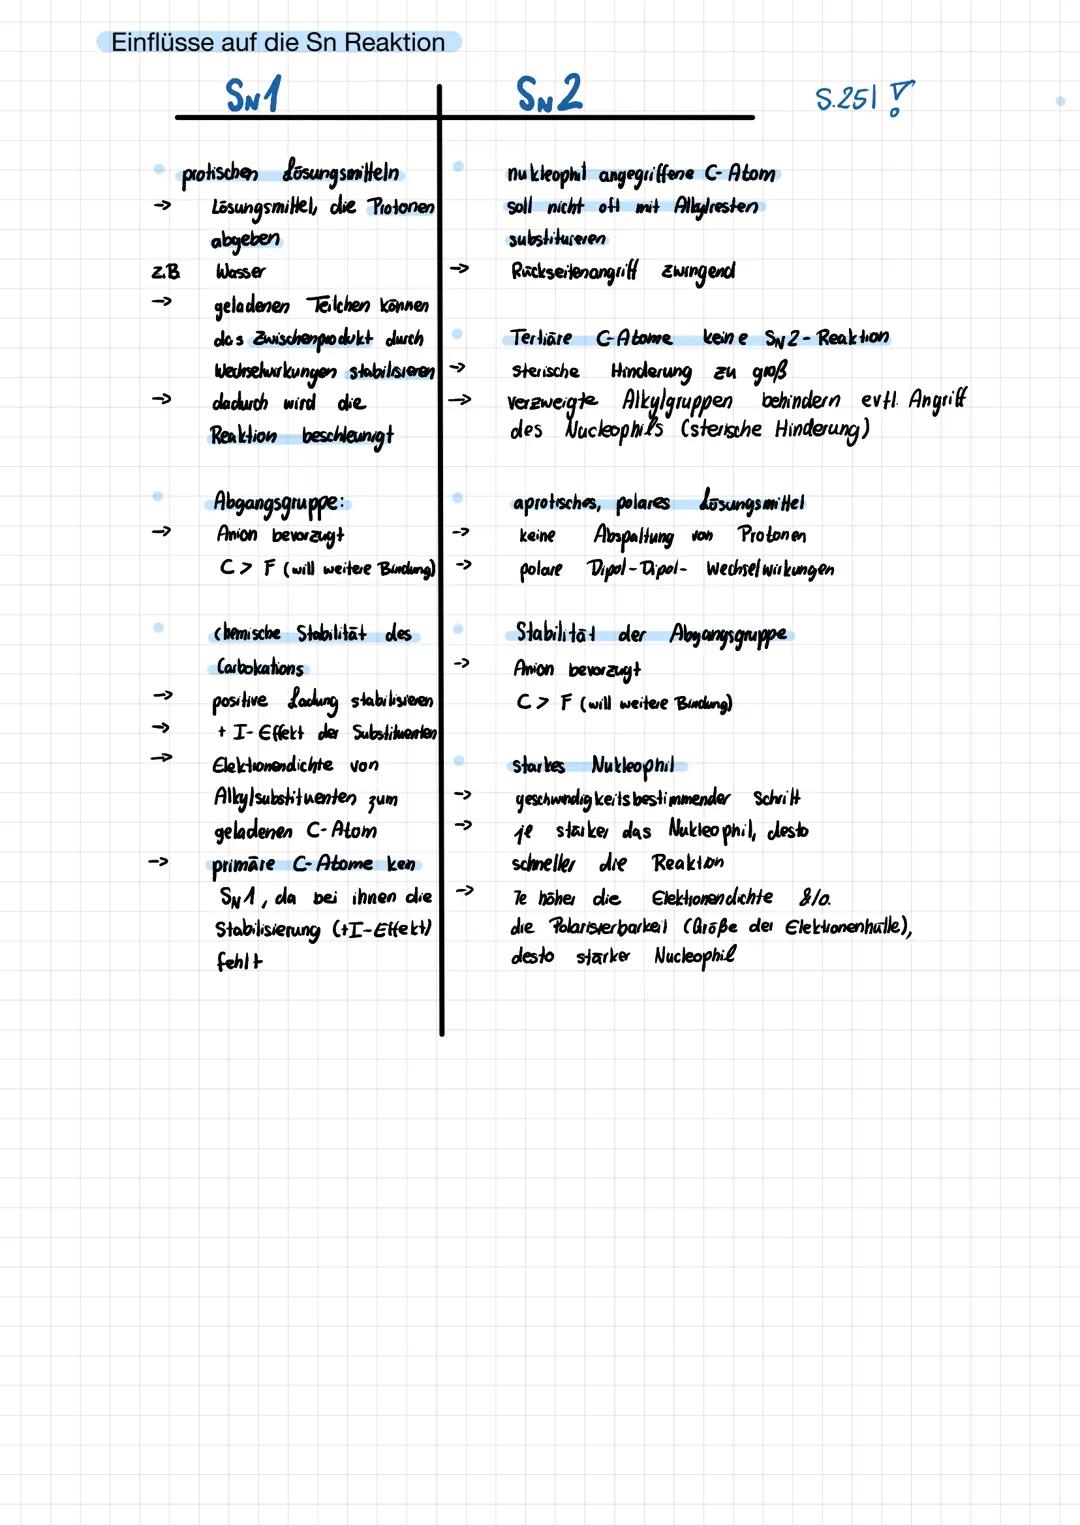 Einflüsse auf die Sn Reaktion
SN1
SN2
S.251 !
• protischen Lösungsmitteln
-> Lösungsmittel, die Protonen
abgeben
z.B Wasser
-> geladenen Teilchen können
das Zwischenprodukt durch
Wechselwirkungen stabilisieren
-> dadurch wird die
Reaktion beschleunigt
• Abgangsgruppe:
-> Anion bevorzugt
C > F (will weitere Bindung)
• chemische Stabilität des
Carbokations
-> positive Ladung stabilisieren
-> + I-Effekt der Substituenten
-> Elektronendichte von
Alkylsubstituenten zum
geladenen C-Atom
-> primäre C-Atome kein
SN1, da bei ihnen die
Stabilisierung (+I-Effekt)
fehlt
• nukleophil angegriffene C-Atom
soll nicht oft mit Alkylresten
substituieren
-> Rückseitenangriff zwingend
• Tertiäre C-Atome keine SN2-Reaktion
-> sterische Hinderung zu groß
-> verzweigte Alkylgruppen behindern evtl. Angriff
des Nucleophils (sterische Hinderung)
• aprotisches, polares Lösungsmittel
-> keine Abspaltung von Protonen
-> polare Dipol-Dipol-Wechselwirkungen
• Stabilität der Abgangsgruppe
-> Anion bevorzugt
C > F (will weitere Bindung)
• starkes Nukleophil
-> geschwindigkeitsbestimmender Schritt
-> je stärker das Nukleophil, desto
schneller die Reaktion
-> Je höher die Elektronendichte &/o.
die Polarisierbarkeit (Größe der Elektronenhülle),
desto stärker Nucleophil